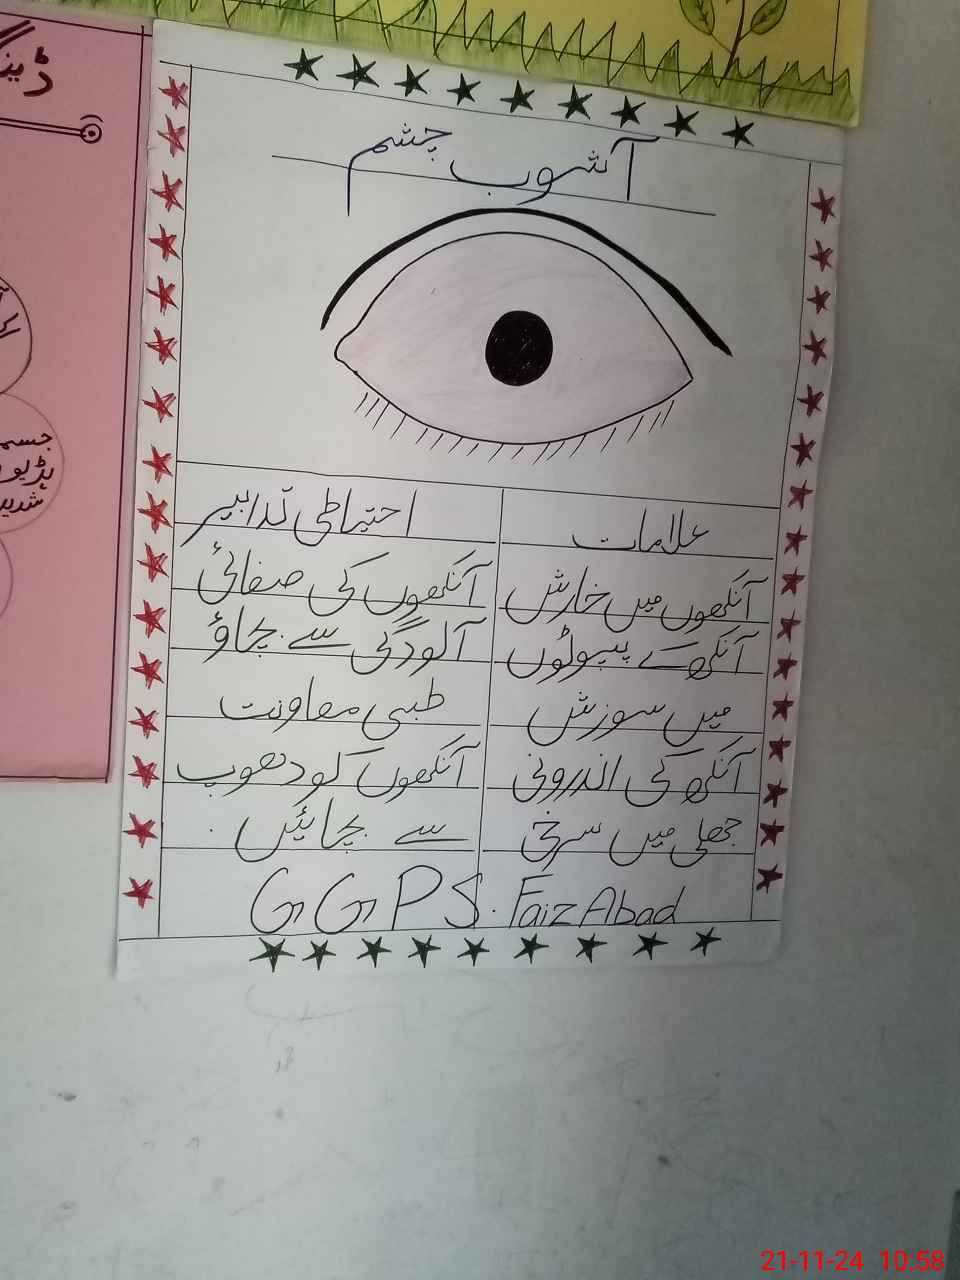 آشوب چشم
علامات
احتیاطی تدابیر
آنکھوں میں خارش
آنکھوں کی صفائی
آنکھ کے پپوٹوں
آلودگی سے بچاؤ
میں سوزش
طبی معاونت
آنکھ کی اندرونی
آنکھوں کو دھوپ
جھلی میں سرخی
سے بچائیں
GGPS. Faiz Abad
جسم
شدید
21-11-24 10:58